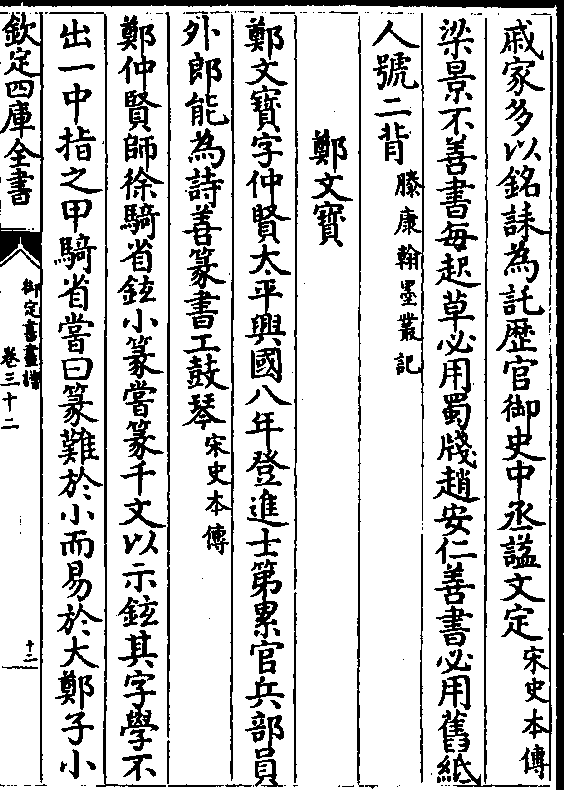 戚家多以銘誄為託歷官御史中丞謚文定宋史本傳
梁景不善書每起草必用蜀牋趙安仁善書必用舊紙
人號二背滕康翰墨叢記
鄭文寶
鄭文寶字仲賢太平興國八年登進士第累官兵部員
外郎能為詩善篆書工鼓琴宋史本傳
鄭仲賢師徐騎省鉉小篆嘗篆千文以示鉉其字學不
出一中指之甲騎省嘗曰篆難於小而易於大鄭子小
欽定四庫全書
御定書畫譜
卷三十二
十二